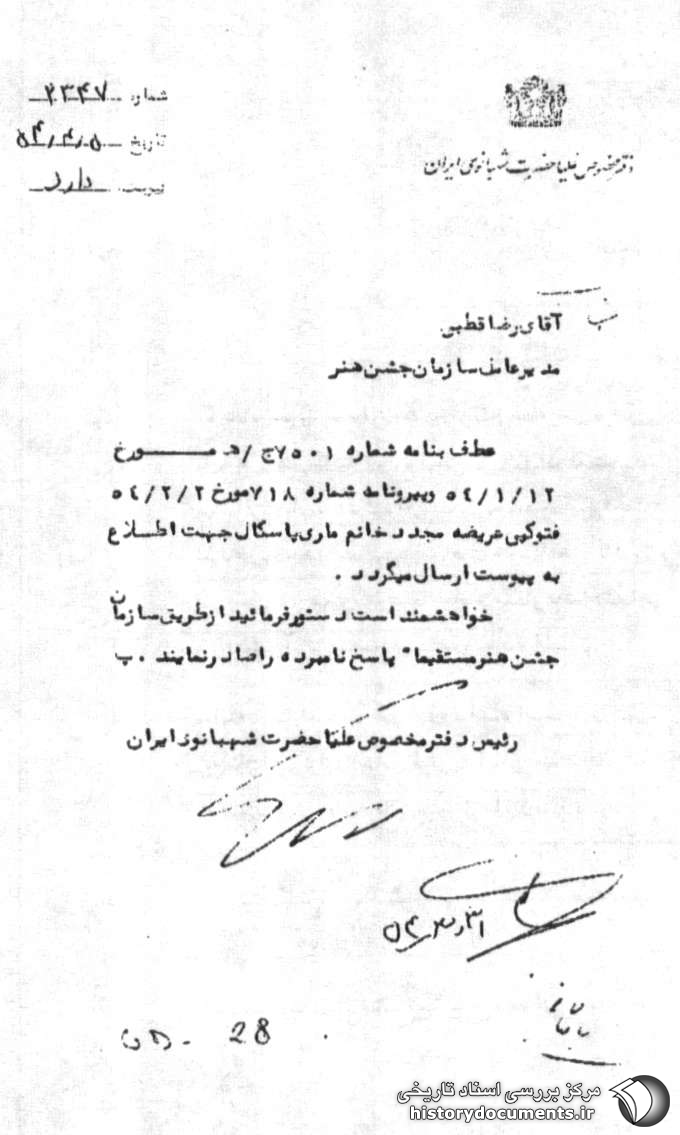 دفتر مخصوص علیا حضرت شهبانوی ایران
شماره ۲۳۴۷
تاریخ ۵۴/۴/۵
پیوست دارد
آقای رضا قطبی
مدیرعامل سازمان جشن هنر
عطف بنامه شماره ۷۵۰۱ج/هـ مـورخ
۵٤/۱/۱۲ وپیرونامه شماره ۷۱۸مورخ ۵٤/۲/۲
فتوکپی عریضه مجدد خانم ماری پاسکال جهت اطـلاع
به پیوست ارسال میگردد .
خواهشمند است دستور فرمائید ازطریق سازمان
جشن هنر مستقیما" پاسخ نامبرده را صادر نمایند . ب
رئیس دفتر مخصوص علیا حضرت شهبانوی ایران
28
مرکز بررسی اسناد تاریخی
historydocuments.ir